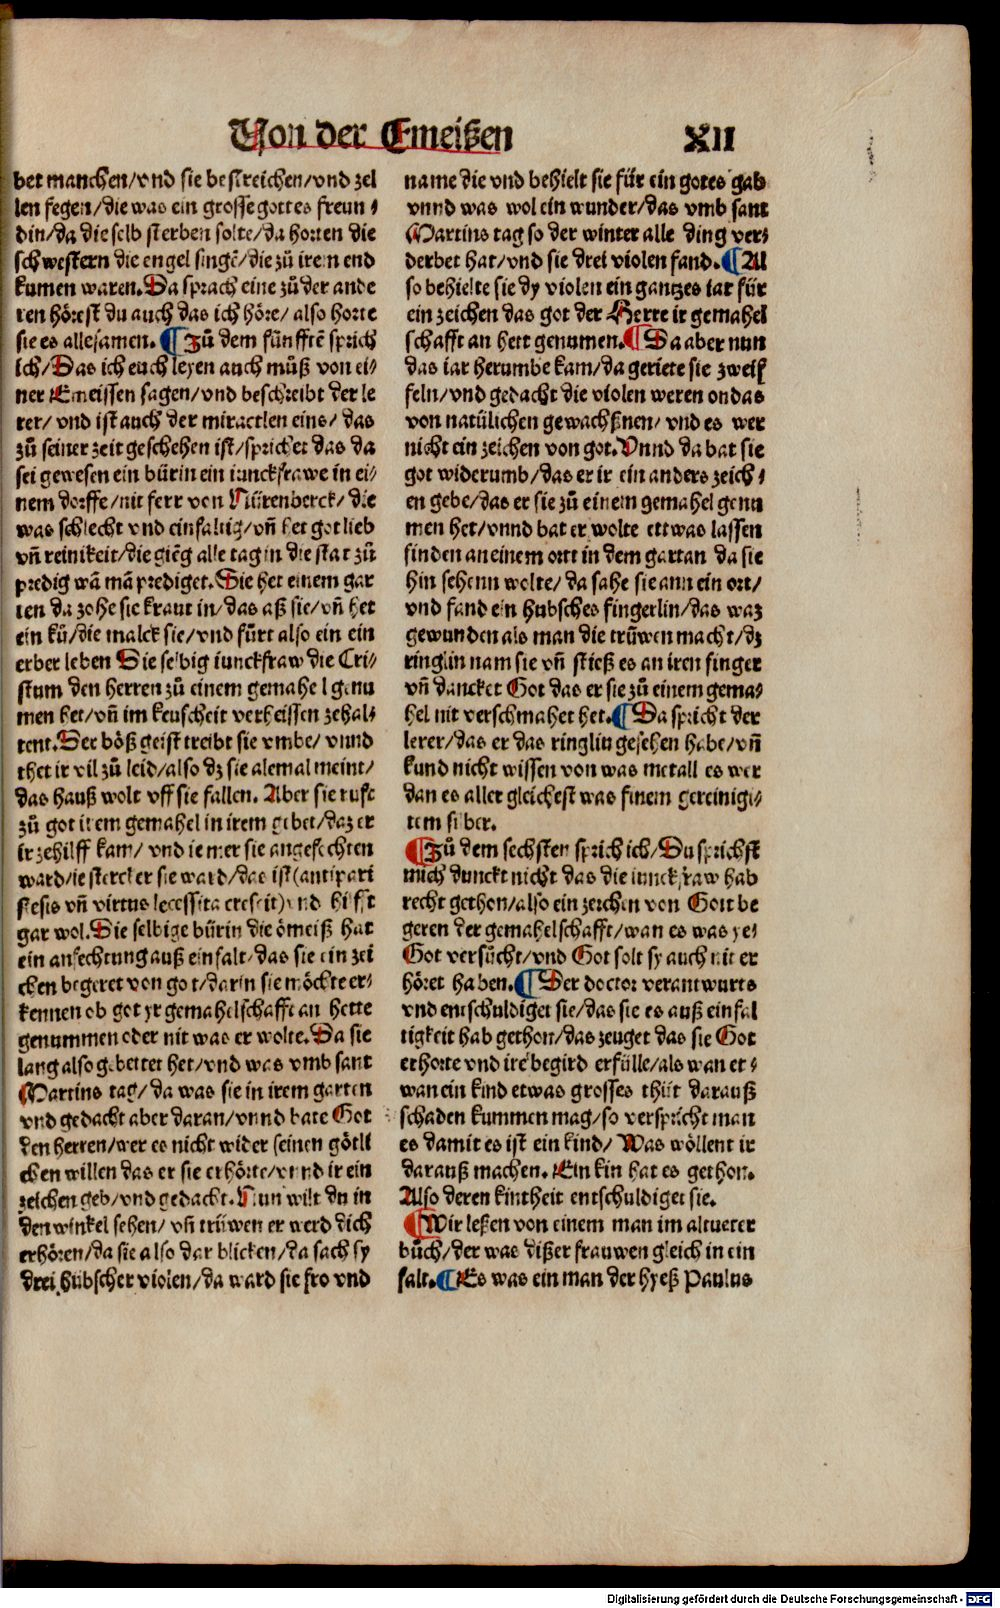 Von der Emeißen XII
bet manchen/vnd sie bestreichen/vnd zel
len fegen/die was ein grosse gottes freun⸗
din/da die selb sterben solte/da horten die
schwestern die engel singē/die zů irem end
kumen waren. Da sprach eine zů der ande
ren hörest du auch das ich höre/ also horte
sie es allesamen. ¶ Zů dem fünfftē sprich
ich/Das ich euch leyen auch můß von ei⸗
ner Emeissen sagen/vnd beschreibt der le
rer/ vnd ist auch der miractlen eins/ das
zů seiner zeit geschehen ist/sprichet das da
sei gewesen ein bürin ein iunckfrawe in ei⸗
nem dorffe/nit ferr von Nürenberck/ die
was schlecht vnd einfaltig/vñ het got lieb
vñ reinikeit/die giēg alle tag in die stat zů
predig wā mā prediget. Sie het einem gar
ten da zohe sie kraut in/das aß sie/vñ het
ein ků/die malck sie/vnd fůrt also ein ein
erber leben Die selbig iunckfraw die Cri⸗
stum den herren zů einem gemahel genu
men het/vñ im keuscheit verheissen zehal⸗
tent. Der böß geist treibt sie vmbe/ vnnd
thet ir vil zů leid/also dz sie alemal meint/
das hauß wolt vff sie fallen. Aber sie ruft
zů got irem gemahel in irem gebet/daz er
ir zehilff kam/ vnd ie mer sie angefochten
ward/ie stercker sie ward/das ist (antipari
stesis vñ virtus lecessita crescit) vnd hilfft
gar wol. Die selbige bürin die ömeiß hat
ein anfechtung auß einfalt/das sie ein zei
chen begeret von got/darin sie möchte er⸗
kennen ob got yr gemahelschafft an hette
genummen oder nit was er wolte. Da sie
lang also gebettet het/vnd was vmb sant
Martins tag/ da was sie in irem garten
vnd gedacht aber daran/vnnd bate Got
den herren/wer es nicht wider seinen götli
chen willen das er sie erhörte/vnnd ir ein
zeichen geb/vnd gedacht. Nun wilt du in
den winkel sehen/ vñ trüwen er werd dich
erhören/da sie also dar blicken/da sach sy
drei hübscher violen/da ward sie fro vnd
name die vnd behielt sie für ein gotes gab
vnnd was wol ein wunder/das vmb sant
Martins tag so der winter alle ding ver⸗
derbet hat/vnd sie drei violen fand. ¶ Al
so behielte sie dy violen ein gantzes iar für
ein zeichen das got der Herre ir gemahel
schafft an hett genumen. ¶ Da aber nun
das iar herumbe kam/da geriete sie zweif
feln/vnd gedacht die violen weren on das
von natülichen gewachßnen/ vnd es wer
nicht ein zeichen von got. Vnnd da bat sie
got widerumb/das er ir ein anders zeich⸗
en gebe/das er sie zů einem gemahel genu
men het/vnnd bat er wolte ettwas lassen
finden an einem ortt in dem gartan da sie
hin sehenn wolte/da sahe sie ann ein ort/
vnd fand ein hubsches fingerlin/das waz
gewunden als man die trüwen macht/dz
ringlin nam sie vñ stieß es an iren finger
vñ dancket Got das er sie zů einem gema⸗
hel nit verschmahet het. ¶ Da spricht der
lerer/das er das ringlin gesehen habe/vñ
kund nicht wissen von was metall es wer
dan es aller gleichest was finem gereinigi⸗
tem silber.
¶ Zů dem sechsten sprich ich/Du sprichst
mich dunckt nicht das die iunckfraw hab
recht gethon/also ein zeichen von Gott be
geren der gemahelschafft/wan es was ye⸗
Got versůcht/vnd Got solt sy auch nit er
höret haben. ¶ Der doctor verantwurts
vnd entschuldiget sie/das sie es auß einfal
tigkeit hab gethon/das zeuget das sie Got
erhorte vnd ire begird erfülle/als wan et⸗
wan ein kind etwas grosses thůt darauß
schaden kummen mag/so verspricht man
es damit es ist ein kind/ Was wöllent ir
darauß machen. Ein kin hat es gethon.
Also deren kintheit entschuldiget sie.
¶ Wir leßen von einem man im altueter
bůch/der was dißer frauwen gleich in ein
falt. ¶ Es was ein man der hyeß Paulus
Digitalisierung gefördert durch die Deutsche Forschungsgemeinschaft - DFG